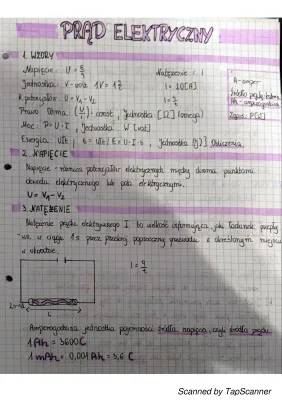 PRĄD ELEKTRYCZNY
1. WZORY
Napięcie: U =
Natężenie: I
Jednostka: V - wolt 1V = 1
I = 1Q[A]
A - amper
R. potencjałów: U = V₁ - V₂
I = q/t
Prawo Ohma: (U/I) = const, jednostka [Ω] (omega)
Moc: P = U · I, jednostka W [wat]
Energia: UIt; E = U · I · t, jednostka (J)
2. NAPIĘCIE
Napięcie - różnica potencjałów elektrycznych między dwoma punktami
obwodu elektrycznego lub pola elektrycznego.
U = V₁ - V₂
3. NATĘŻENIE
Natężenie prądu elektrycznego I to wielkość informująca, jaki ładunek przepły-
w ciągu 1s przez przekrój poprzeczny przewodu w określonym miejscu
w obwodzie.
I = q/t
L
Amperogodzina jednostka pojemności źródła napięcia, czyli źródła prądu.
1 Ah = 3600 C
1 mAh = 0,001 Ah = 3,6 C
Scanned by TapScanner